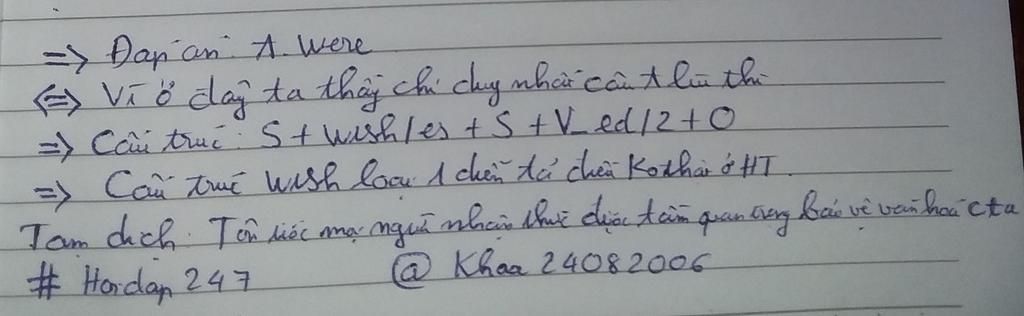 => Đáp án: A. Were
<=> Vì ở đây ta thấy chỉ duy nhất câu A lùi thì
=> Cấu trúc: S + wish/es + S + V_ed/2 + O
=> Cấu trúc wish loại 1 diễn tả điều ko thật ở HT.
Tạm dịch: Tôi ước mọi người nhận thức được tầm quan trọng bảo vệ văn hoá cta
# Hoidap 247 @ Khoa 24082006